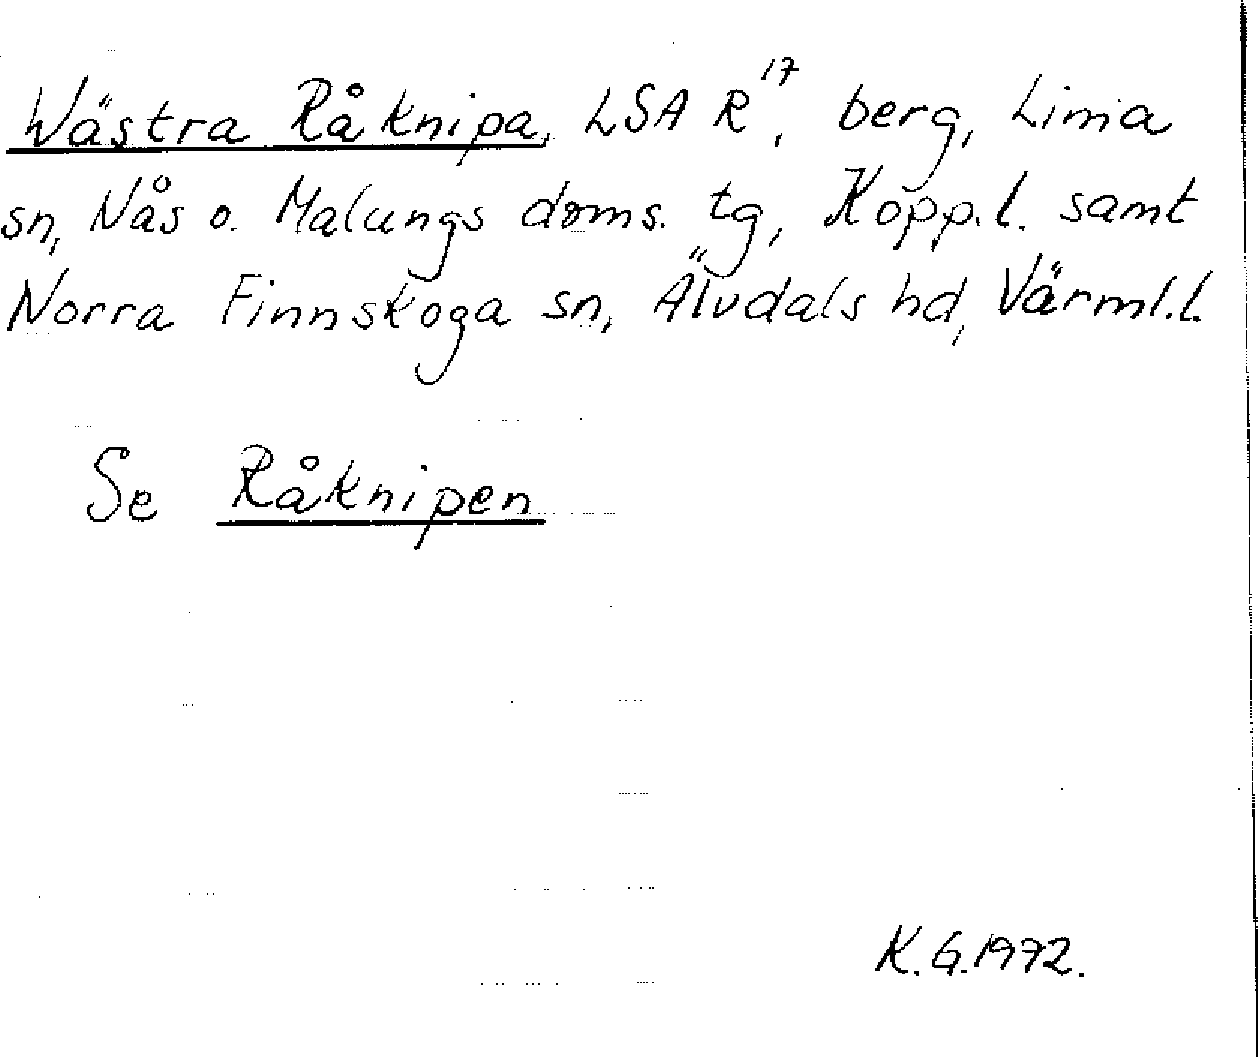 Wästra Råknipa, LSA R¹⁷, berg, Lima
sn, Nås o. Malungs doms. tg, Kopp.l. samt
Norra Finnskoga sn, Älvdals hd, Värml.l.
Se Råknipen
K.G.1972.